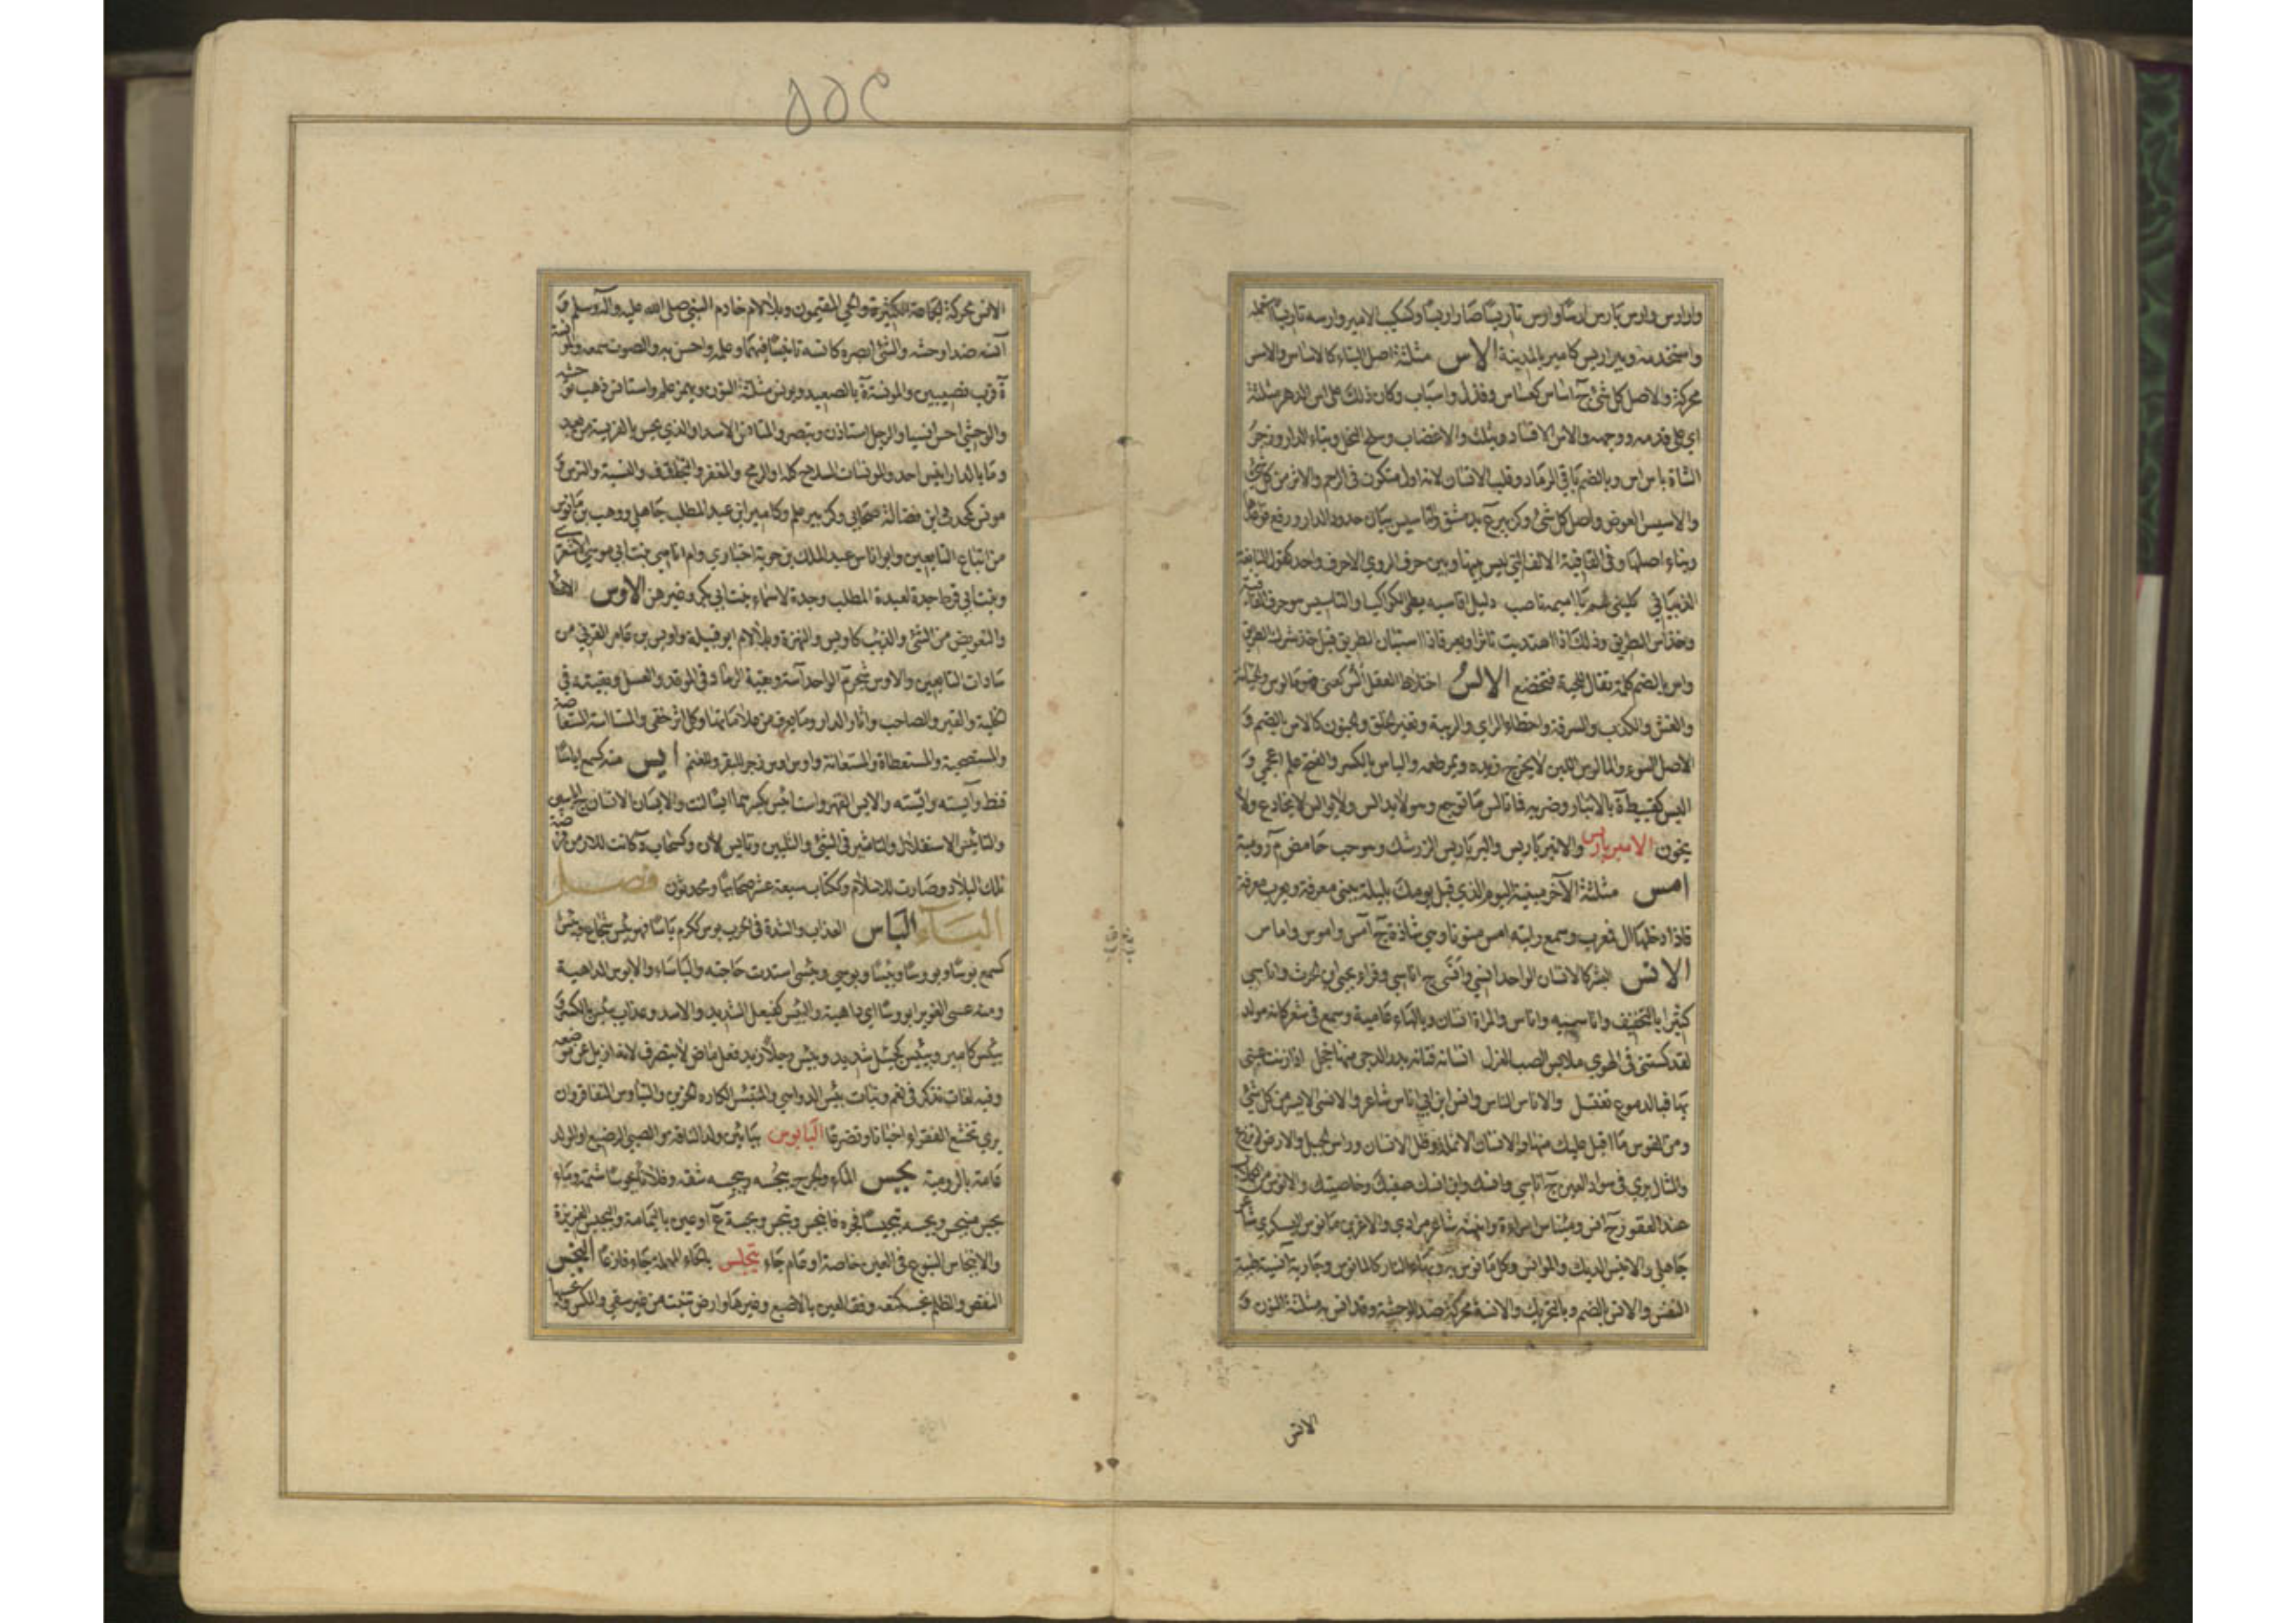 واستخدمه وبيراريس كامير بالمدينة الاس مثلثة اصل البناء كالاساس والاسس
محركة والاصل كل شئ ج اساس كعساس وقذل واسباب وكان ذلك على اس الدهر مثلثة
اي على قدمه ووجهه والاس الافساد ويثلث والاغضاب وسلح النحل وبناء الدار وزجر
الشاة باس اس وبالضم باقي الرماد وقلب الانسان لانه اول متكون في الرحم والاثر من كل شئ
والاسيس العوض واصل كل شئ وكزبير ع بدمشق والتاسيس بيان حدود الدار ورفع قواعدها
وبناء اصلها وفي القافية الالف التي ليس بينها وبين حرف الروي الا حرف واحد كقول النابغة
الذبياني كليني لهم يا اميمة ناصب وليل اقاسيه بطئ الكواكب
وخذ اس الطريق وذلك اذا اهتديت باثر او بعر فاذا استبان الطريق قيل خذ شرك الطريق
واس بالضم كلمة تقال للحية فتخضع الالس اختلاط العقل الس كعني فهو مالوس والخيانة
والغش والكذب والسرقة واخطاء الراي والريبة وتغير الخلق والجنون كالالاس بالضم و
الاصل السوء والمالوس اللبن لا يخرج زبده ويمر طعمه والياس بالكسر والفتح علم اعجمي و
اليس كقبيطة ة بالانبار وضربه فما تالس ما توجع وهو لا يدالس ولا يوالس لا يخادع ولا
يخون الامبرباريس والانبرباريس والبرباريس الزرشك وهو حب حامض م رومية
امس مثلثة الآخر مبنية اليوم الذي قبل يومك بليلة يبنى معرفة ويعرب معرفة
فاذا دخلها ال فمعرب وسمع رايته امس منونا وهي شاذة ج آمس واموس واماس
الانس البشر كالانسان الواحد انسي وانسي ج اناسي وقرا يحيى بن الحرث واناسي
كثيرا بالتخفيف واناسية واناس والمراة انسان وبالهاء عامية وسمع في شعر كانه مولد
لقد كستني في الهوى ملابس الصب الغزل انسانة فتانة بدر الدجى منها خجل اذا زنت عيني
بها فبالدموع تغتسل والاناس الناس وانس ابن ابي اناس شاعر والانسي الايسر من كل شئ
ومن القوس ما اقبل عليك منها والانسان الانملة وظل الانسان وراس الجبل والارض لم تزرع
والمثال يرى في سواد العين ج اناسي وانسك وابن انسك صفيك وخاصتك والانوس من الكلاب
ضد العقور ج انس ومئناس امراة وابنها شاعر مرادي والاغر بن مانوس اليشكري شاعر
جاهلي والانيس الديك والموانس وكل مانوس به وبهاء النار كالمانوس وجارية آنسة طيبة
النفس والانس بالضم وبالتحريك والانسة محركة ضد الوحشة وقد انس به مثلثة النون و
الانس
الانس محركة الجماعة الكثيرة والحي المقيمون وبلا لام خادم النبي صلى الله عليه وآله وسلم و
آنسه ضد اوحشه والشئ ابصره كانسه تانيسا فيهما وعلمه واحس به والصوت سمعه والمونسة
ة قرب نصيبين والمونسة ة بالصعيد ويونس مثلثة النون ويهمز علم واستانس ذهب توحشه
والوحشي احس انسيا والرجل استاذن وتبصر والمتانس الاسد او الذي يحس بالفريسة من بعيد
وما بالدار انيس احد والمونسات السلاح كله او الرمح والمغفر والتجفاف والتسبغة والترس و
مونس كمحدث ابن فضالة صحابي وكزبير علم وكامير ابن عبد المطلب جاهلي ووهب بن مانوس
من اتباع التابعين وابو اناس عبد الملك بن جوية اخباري وام اناس بنت ابي موسى الاشعري
وبنت ابي قرط جدة لعبد المطلب وجدة لاسماء بنت ابي بكر وغيرهن الاوس الاعطاء
والتعويض من الشئ والذئب كاويس والنهزة وبلا لام ابو قبيلة واويس بن عامر القرني من
سادات التابعين والاوس شجر م الواحد آسة وبقية الرماد في الموقد والعسل وبقيته في
الخلية والقبر والصاحب واثار الدار وما يعرف من علاماتها وكل اثر خفي والمستاسة المستعاضة
والمستصحبة والمستعطاة والمستعانة واوس اوس زجر للبقر والغنم ايس منه كسمع اياسا
قنط وآيسته وايسته والايس القهر واست ائس بكسرهما ايسا لنت والايسان الانسان ج اياسين
والتاييس الاستقلال والتاثير في الشئ والتليين وتايس لان وكسحاب ة كانت للارمن فرضة
تلك البلاد وصارت للاسلام وككتاب سبعة عشر صحابيا ومحدثون فصل
الباء الباس العذاب والشدة في الحرب بوس ككرم باسا فهو بئيس شجاع وبئس
كسمع بوسا وبووسا وبئيسا وبوسى وبئسى اشتدت حاجته والباساء والابوس الداهية
ومنه عسى الغوير ابوسا اي داهية والبيئس كفيعل الشديد والاسد وعذاب بئس بالكسر و
بئيس كامير وبيئس كجيئل شديد وبئس رجلا زيد فعل ماض لا يتصرف لانه ازيل عن موضعه
وفيه لغات تذكر في نعم وبنات بئس الدواهي والمبتئس الكاره الحزين والتباوس التفاقر وان
يري تخشع الفقراء اخباتا وتضرعا البابوس ببائين ولد الناقة والصبي الرضيع او الولد
عامة بالرومية بجس الماء والجرح يبجسه ويبجسه شقه وفلانا بجوسا شتمه وماء
بجس منبجس وبجسه تبجيسا فجره فانبجس وتبجس وبجسة ع او عين باليمامة والبجيس الغزيرة
والانبجاس النبوع في العين خاصة او عام جاء يتبحلس بالحاء المهملة جاء فارغا البخس
النقص والظلم بخسه كمنعه وفقء العين بالاصبع وغيرها وارض تنبت من غير سقي والمكس و